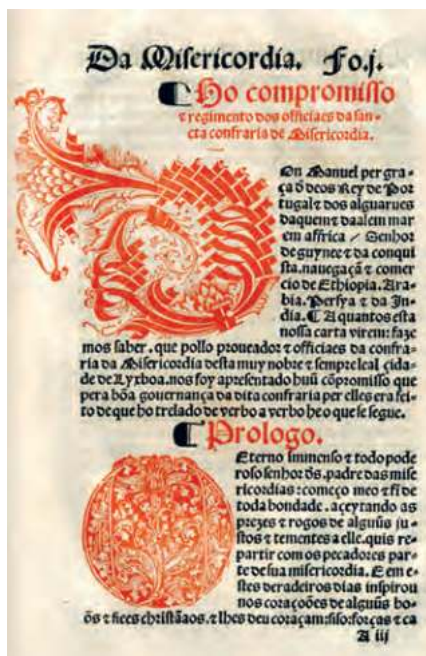 Da Misericordia. Fo.j.
¶ Ho compromisso
⁊ regimento dos officiaes da san-
cta confraria de Misericordia.
Dn Manuel per gra-
ça d̃ deos Rey de Por
tugal ⁊ dos alguarues
daquem ⁊ daalem mar
em affrica / Senhor
de guynee ⁊ da conqui
sta. nauegaçã ⁊ comer
cio de Ethiopia. Ara-
bia. Persya ⁊ da In-
dia. ¶ A quantos esta
nossa carta virem: faze
mos saber. que pollo proueador ⁊ officiaes da confra-
ria da Misericordia desta muy nobre ⁊ sempre leal çida-
de de Lyxboa. nos foy apresentado huũ cõpromisso que
pera bõa gouernança da dita confraria per elles era fei-
to de que ho trelado de verbo a verbo he o que se segue.
¶ Prologo.
O Eterno immenso ⁊ todo pode
roso senhor d̃s. padre das mise
ricordias: começo meo ⁊ fĩ de
toda bondade. açeytando as
prezes ⁊ rogos de alguũs ju-
stos ⁊ tementes a elle. quis re-
partir com os pecadores par-
te de sua misericordia. E em e-
stes deradeiros dias inspirou
nos coraçoões de alguũs bo-
õs ⁊ fiees christãaos. ⁊ lhes deu coraçam: siso: forças ⁊ ca
A iij